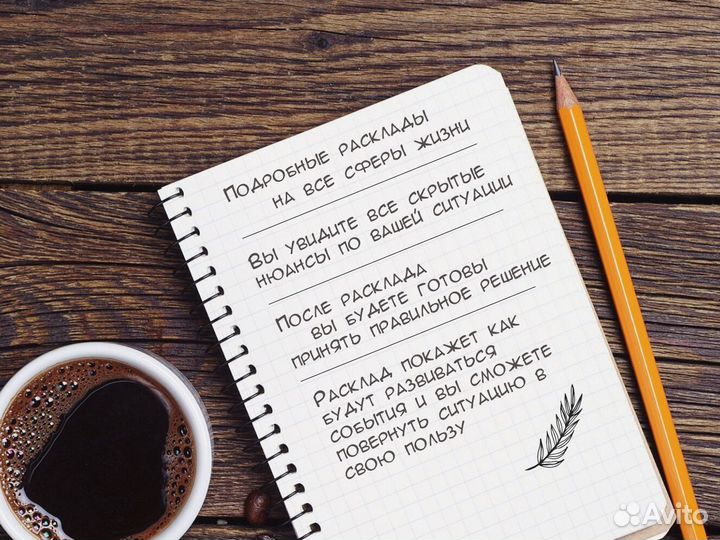 Подробные расклады
на все сферы жизни
Вы увидите все скрытые
нюансы по вашей ситуации
После расклада
вы будете готовы
принять правильное решение
Расклад покажет как
будут развиваться
события и вы сможете
повернуть ситуацию в
свою пользу
Avito